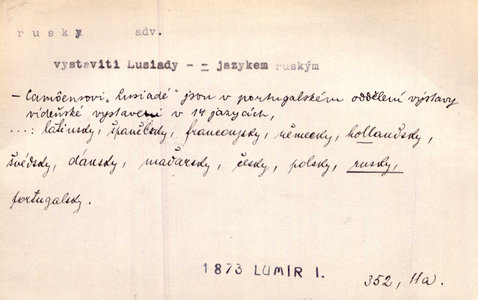 rusky adv.
vystaviti Lusiady - = jazykem ruským
— Camõensovi „Lusiadé" jsou v portugalském oddělení výstavy
vídeňské vystaveni v 14 jazycích,
...: latinsky, španělsky, francouzsky, německy, hollandsky,
švédsky, dánsky, maďarsky, česky, polsky, rusky,
portugalsky.
1873 LUMÍR I.
352, 11a.